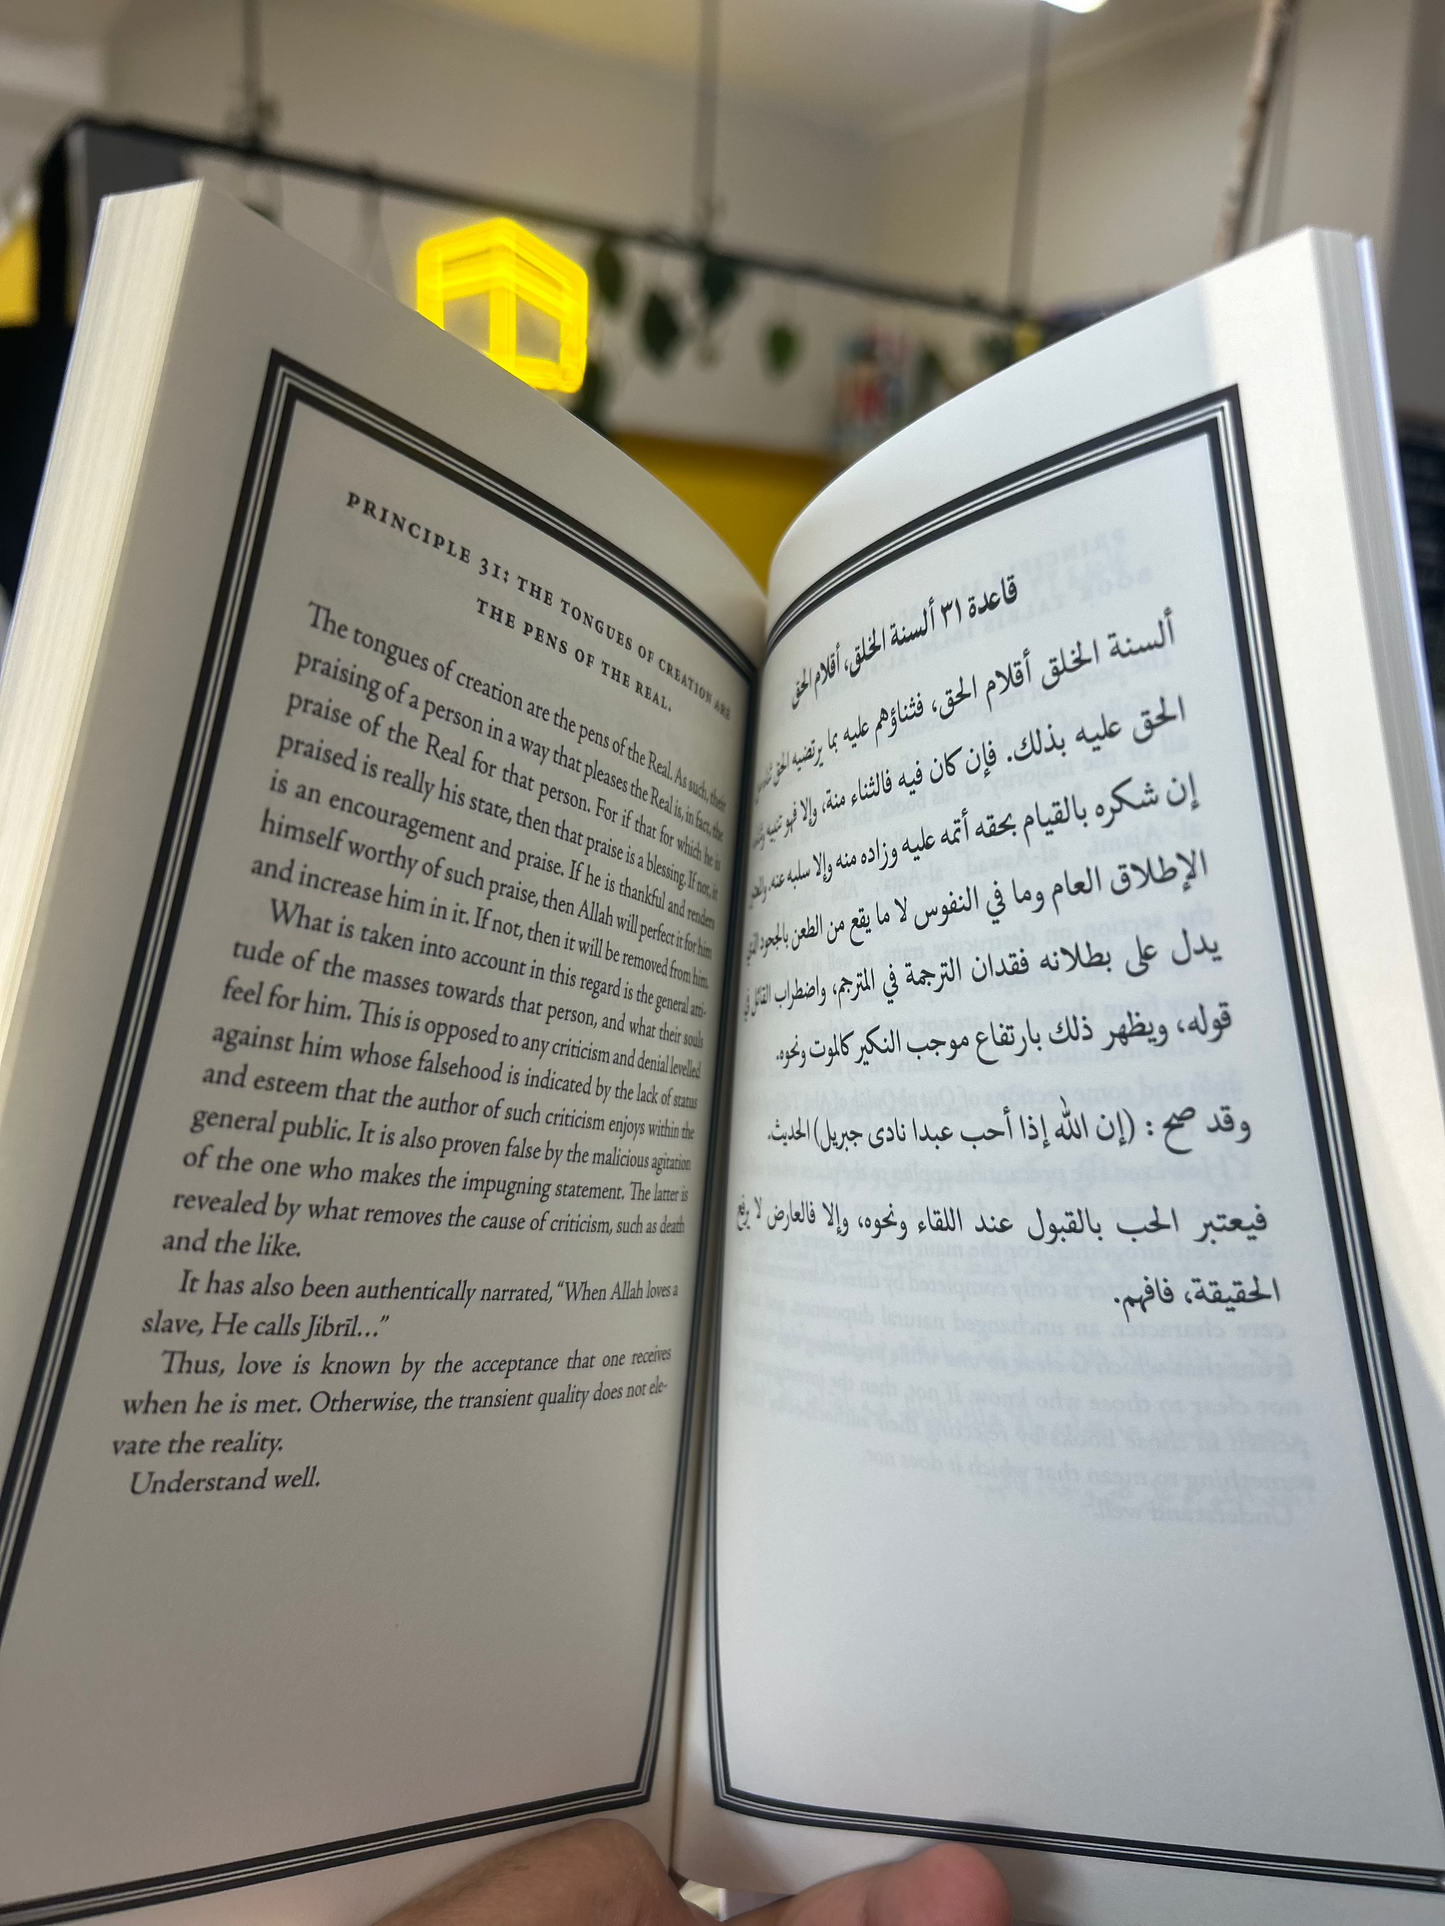 PRINCIPLE 31: THE TONGUES OF CREATION ARE
THE PENS OF THE REAL.
The tongues of creation are the pens of the Real. As such, their
praising of a person in a way that pleases the Real is, in fact, the
praise of the Real for that person. For if that for which he is
praised is really his state, then that praise is a blessing. If not, it
is an encouragement and praise. If he is thankful and renders
himself worthy of such praise, then Allah will perfect it for him
and increase him in it. If not, then it will be removed from him.
What is taken into account in this regard is the general atti-
tude of the masses towards that person, and what their souls
feel for him. This is opposed to any criticism and denial levelled
against him whose falsehood is indicated by the lack of status
and esteem that the author of such criticism enjoys within the
general public. It is also proven false by the malicious agitation
of the one who makes the impugning statement. The latter is
revealed by what removes the cause of criticism, such as death
and the like.
It has also been authentically narrated, “When Allah loves a
slave, He calls Jibrīl...”
Thus, love is known by the acceptance that one receives
when he is met. Otherwise, the transient quality does not ele-
vate the reality.
Understand well.
قاعدة ٣١ ألسنة الخلق، أقلام الحق
ألسنة الخلق أقلام الحق، فثناؤهم عليه بما يرتضيه الحق
الحق عليه بذلك. فإن كان فيه فالثناء منة، وإلا فهو تنبيه
إن شكره بالقيام بحقه أتمه عليه وزاده منه وإلا سلبه عنه،
الإطلاق العام وما في النفوس لا ما يقع من الطعن بالجحود الذي
يدل على بطلانه فقدان الترجمة في المترجم، واضطراب القائل في
قوله، ويظهر ذلك بارتفاع موجب النكير كالموت ونحوه.
وقد صح : (إن الله إذا أحب عبدا نادى جبريل) الحديث.
فيعتبر الحب بالقبول عند اللقاء ونحوه، وإلا فالعارض لا يرفع
الحقيقة، فافهم.